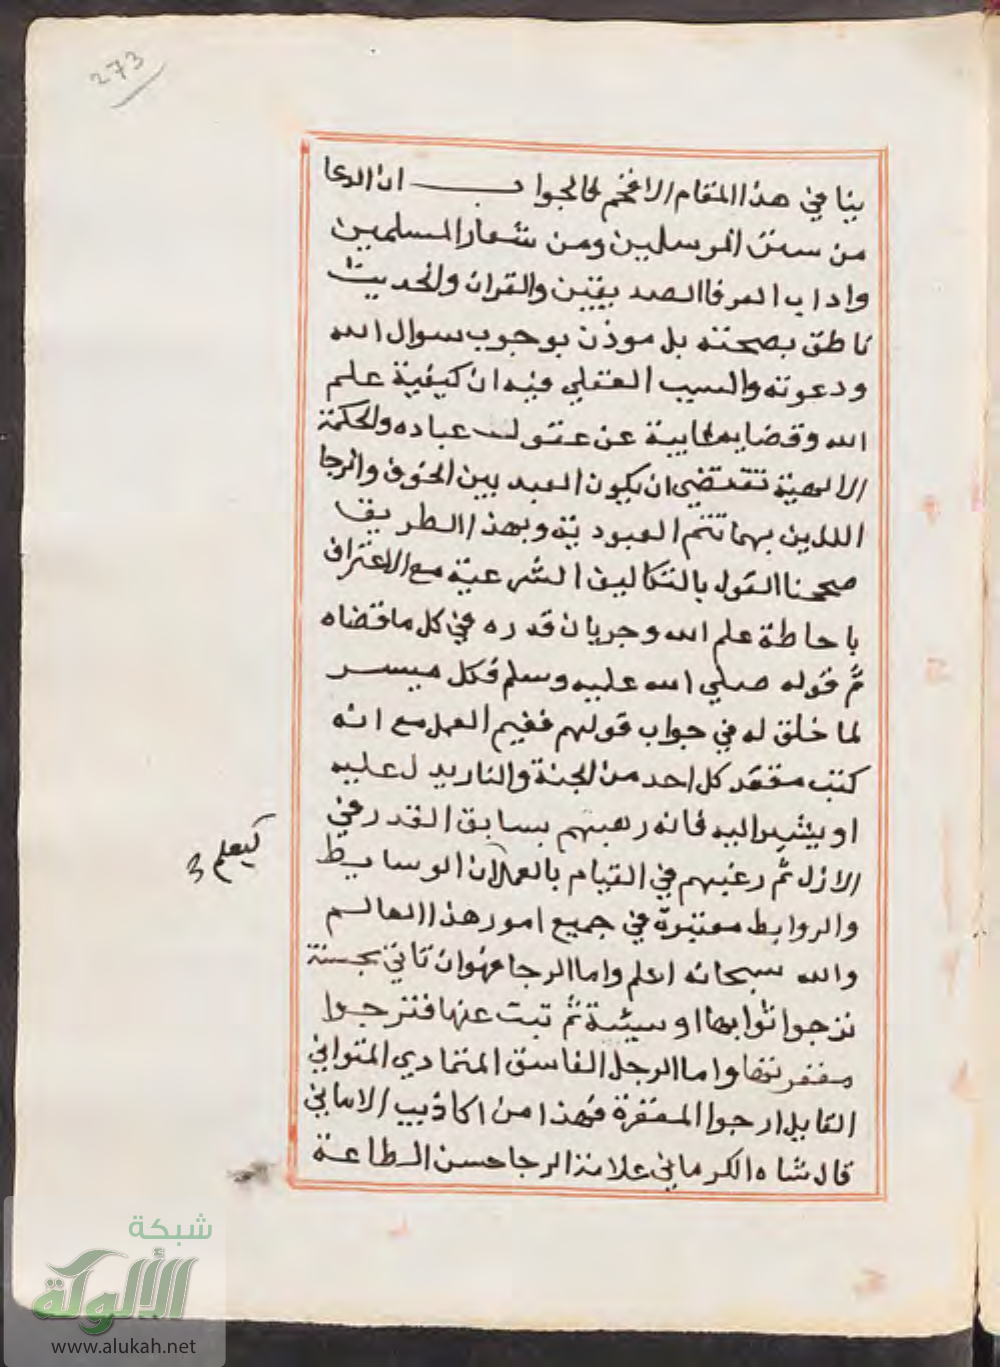 273
ينا في هذا المقام الافخم فالجواب ان الدعا
من سنن المرسلين ومن شعار المسلمين
واداب العرفا الصديقين والقران والحديث
ناطق بصحته بل موذن بوجوب سوال الله
ودعوته والسبب العقلي فيه ان كيفية علم
الله وقضايه غايبة عن عقول عباده والحكمة
الالهية تقتضي ان يكون العبد بين الخوف والرجا
اللذين بهما تتم العبودية وبهذا الطريق
صححنا القول بالتكاليف الشرعية مع الاعتراف
باحاطة علم الله وجريان قدره في كل ما قضاه
ثم قوله صلي الله عليه وسلم فكل ميسر
لما خلق له في جواب قولهم ففيم العمل مع انه
كتب مقعد كل احد من الجنة والنار يدل عليه
او يشير اليه فانه رهبهم بسابق القدر في
الازل ثم رغبهم في القيام بالعمل لان الوسايط
كيعلم
والروابط معتبرة في جميع امور هذا العالم
والله سبحانه اعلم واما الرجا فهو ان تاتي بحسنة
ترجوا ثوابها او سيئة ثم تبت عنها فترجوا
مغفرتها واما الرجل الفاسق المتمادي المتواني
القايل ارجوا المغفرة فهذا من اكاذيب الاماني
قال شاه الكرماني علامة الرجا حسن الطاعة
شبكة
الألوكة
www.alukah.net